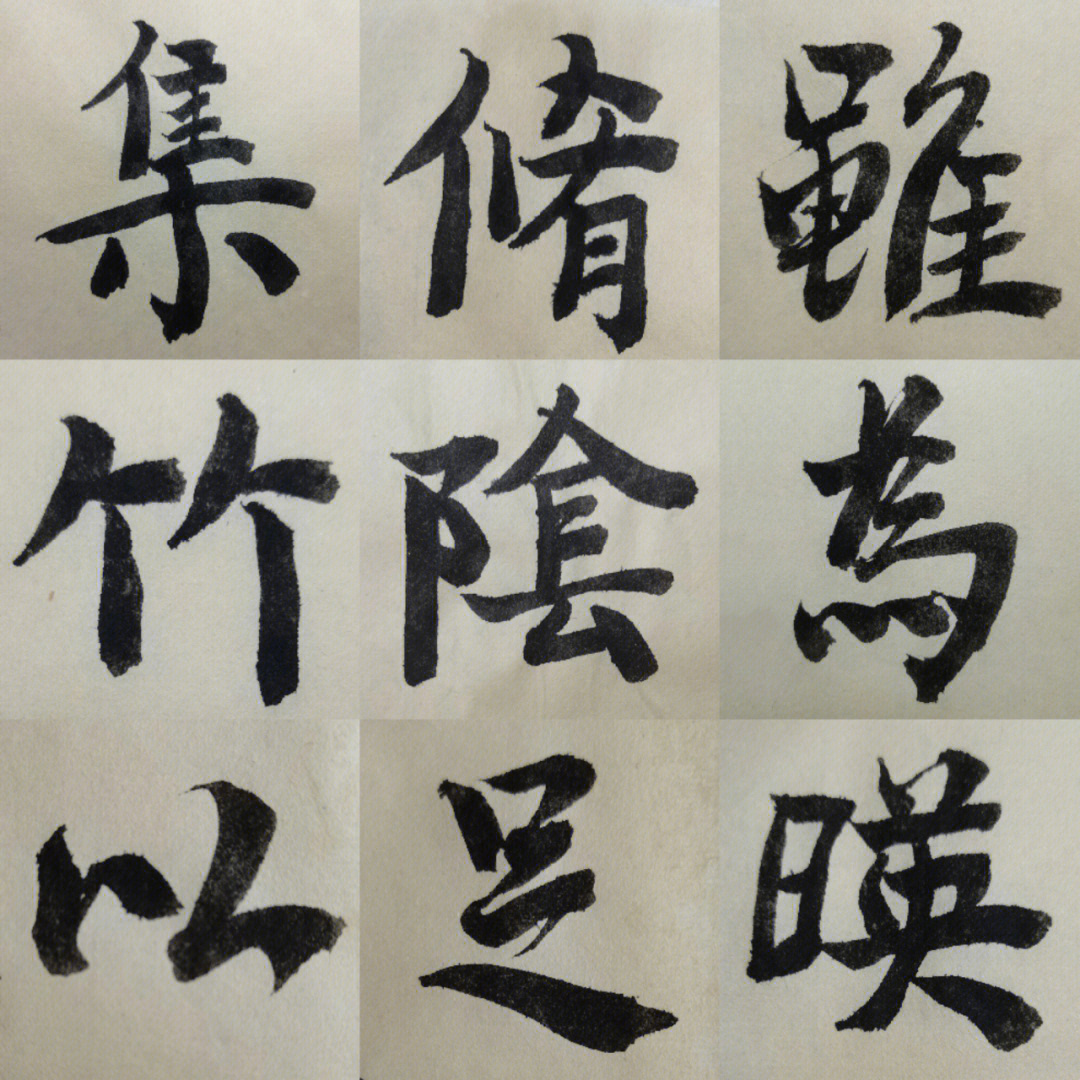 集脩雖
竹陰為
以足暎